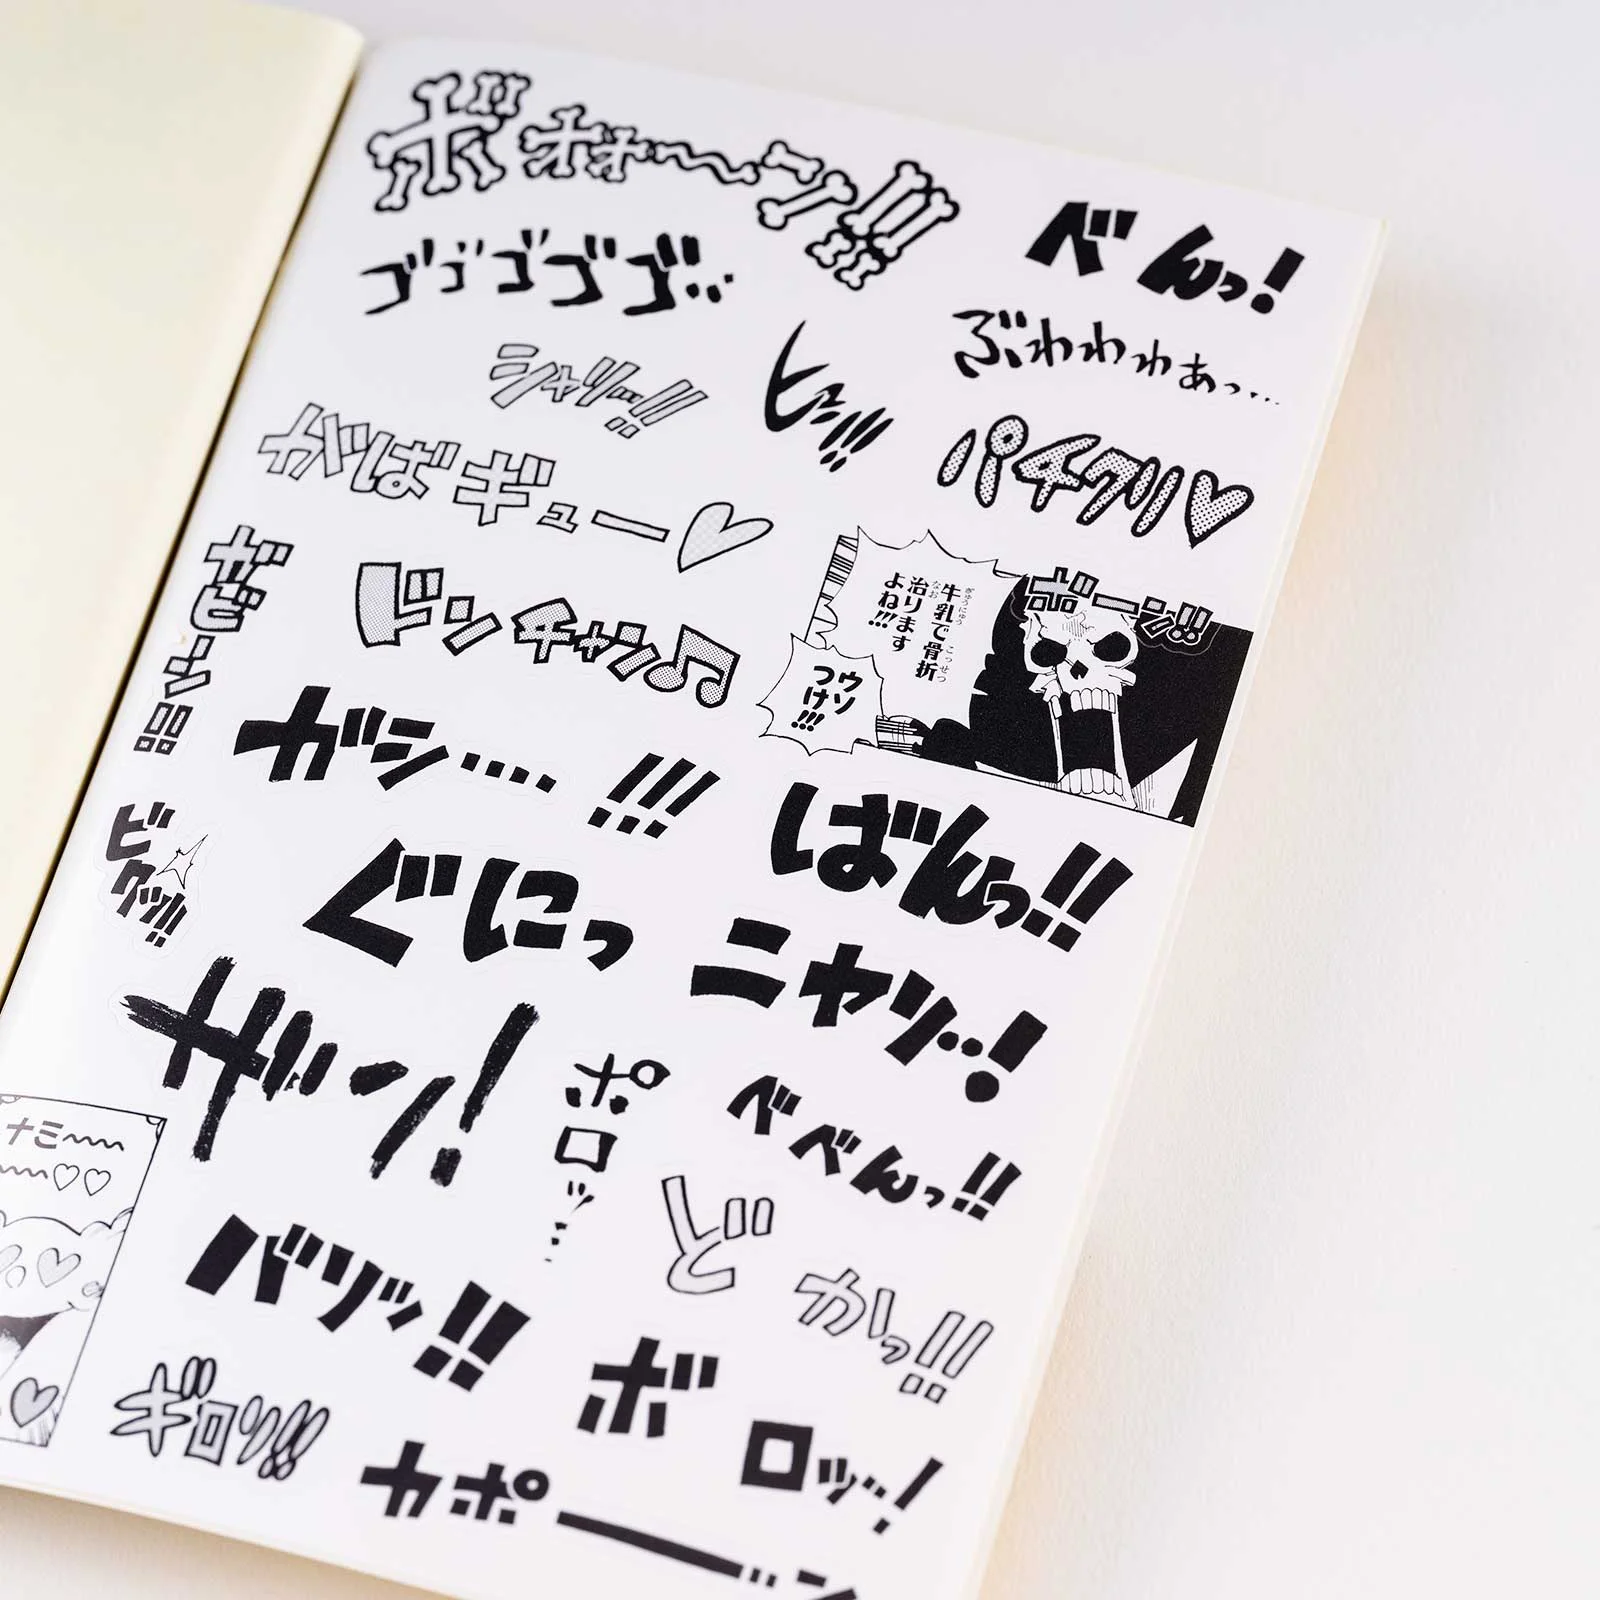 ボォォ〜ン!!!
べんっ!
ゴゴゴゴゴ…
ぶわわわぁっ…
シャリッ…!!
ヒュン!!!
パチクリ♡
ずばギュー♡
ギャピーン!!
ブンチャン♫
牛乳で骨折
ぎゅうにゅう
こっせつ
治ります
なお
よね!!!
ウソ
つけ!!!
ボーン!!
ガシ…!!!
ばんっ!!
ビクッ!!
ぐにっ
ニヤリッ…!
ザン!
ポロッ…
べべんっ!!
ナミ〜〜
〜〜♡♡
バリッ!!
どかっ!!
ギロリ!!
ボロッ…!
カポーーン